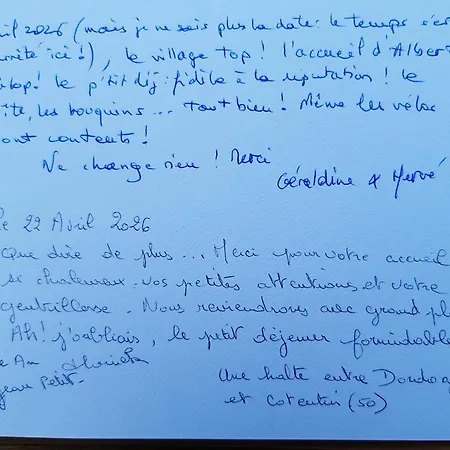 ril 2026 (mais je ne sais plus la date: le temps s'es
rrêté ici!), le village top! l'accueil d'Alber
top! le p'tit déj: fidèle à la réputation! le
îte, les bouquins... tout bien! Même les vélos
ont contents!
Ne change rien! Merci
Géraldine & Hervé
Le 22 Avril 2026
Que dire de plus... Merci pour votre accueil
si chaleureux. vos petites attentions et votre
gentillesse. Nous reviendrons avec grand pl
Ah! j'oubliais, le petit déjeuner formidable
Jean Petit.
Une halte entre Dordog
et Cotentin (50)